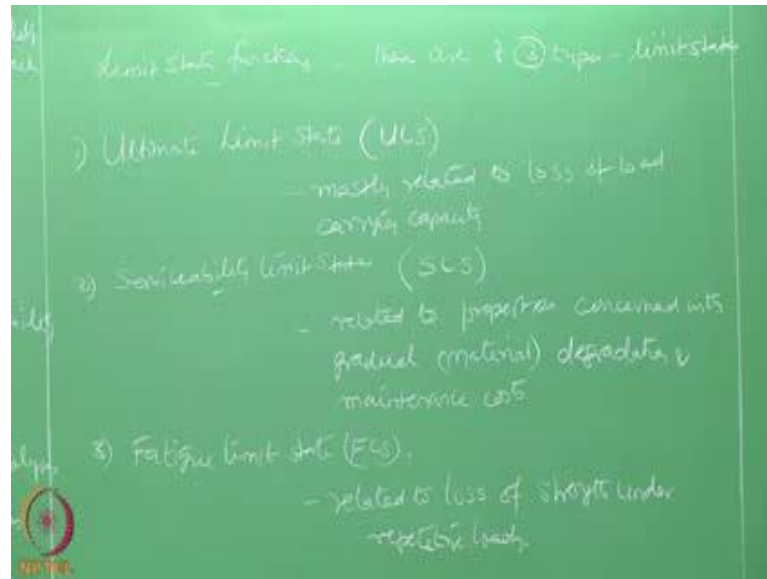 Limit state function - there are 3 types - limit state
1) Ultimate Limit State (ULS)
- mostly related to loss of load
carrying capacity
2) Serviceability limit state (SLS)
- related to properties concerned with
gradual (material) degradation &
maintenance cost
3) Fatigue limit state (FLS).
- related to loss of strength under
repetitive loads
NPTEL